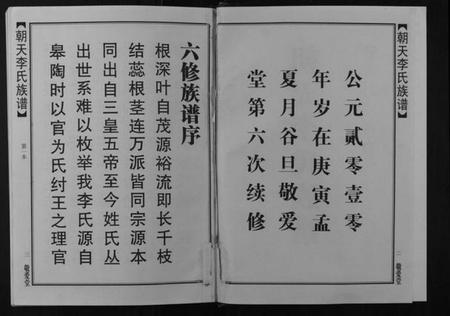 朝天李氏族谱
公元贰零壹零
年岁在庚寅孟
夏月谷旦敬爱
堂第六次续修
二
敬爱堂
六修族谱序
根深叶自茂源裕流即长千枝
结蕊根茎连万派皆同宗源本
同出自三皇五帝至今姓氏丛
出世系难以枚举我李氏源自
皋陶时以官为氏纣王之理官
朝天李氏族谱
第一本
三
敬爱堂